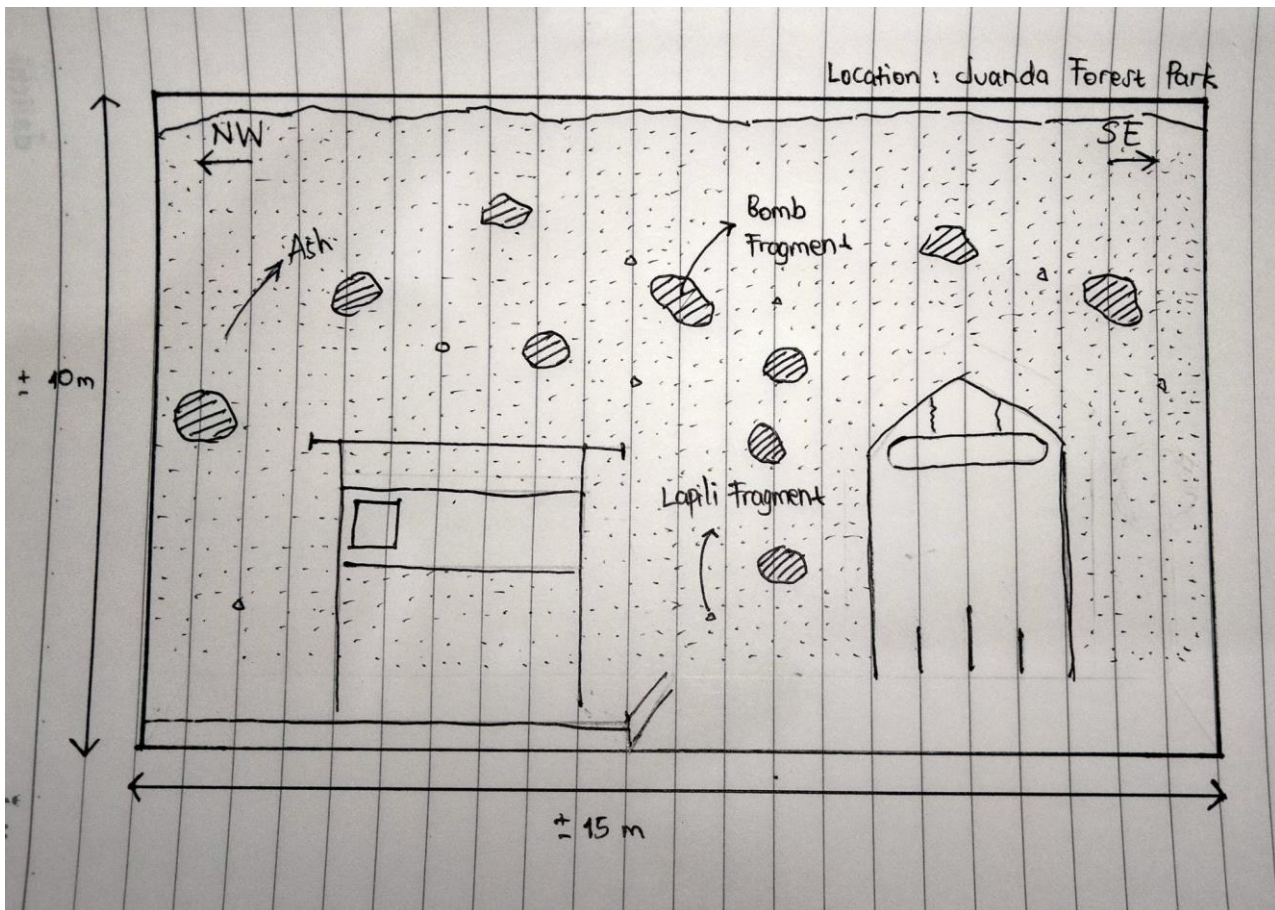 Location : Juanda Forest Park
NW
SE
Bomb
Fragment
Ash
± 10m
Lapili Fragment
± 15 m